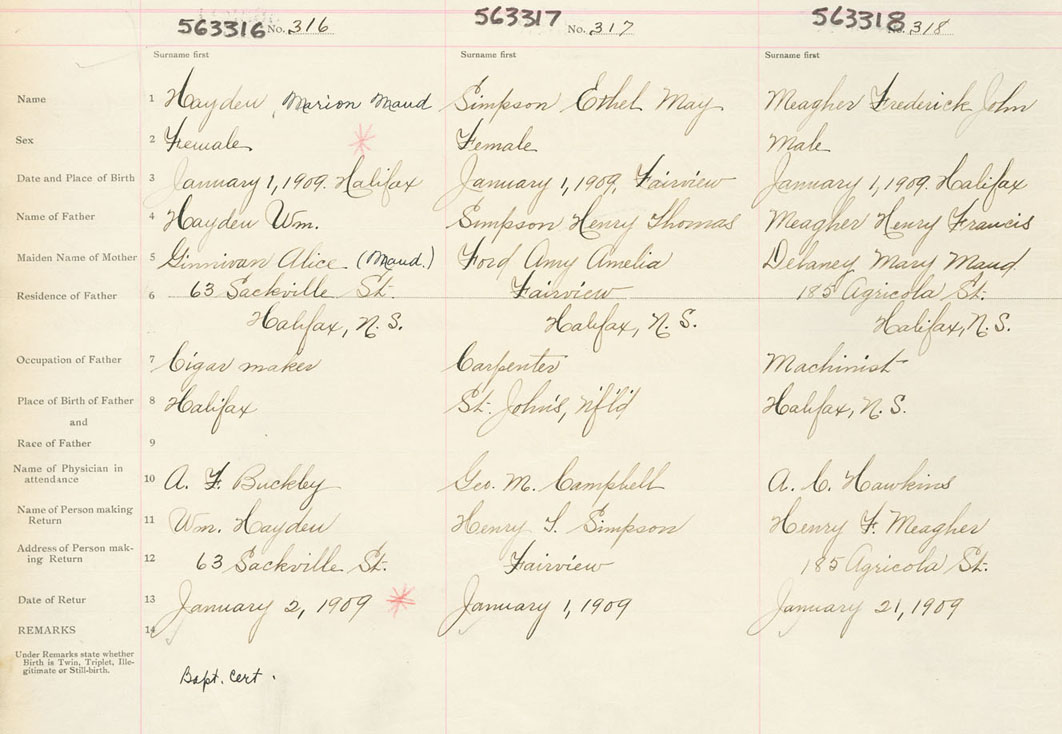 563316 No. 316 563317 No. 317 563318 No. 318
Surname first Surname first Surname first
Name 1 Hayden Marion Maud Simpson Ethel May Meagher Frederick John
Sex 2 Female Female Male
Date and Place of Birth 3 January 1, 1909. Halifax January 1, 1909. Fairview January 1, 1909. Halifax
Name of Father 4 Hayden Wm. Simpson Henry Thomas Meagher Henry Francis
Maiden Name of Mother 5 Ginnivan Alice (Maud.) Ford Amy Amelia Delaney Mary Maud
Residence of Father 6 63 Sackville St. Fairview 185 Agricola St.
Halifax, N. S. Halifax, N. S. Halifax, N. S.
Occupation of Father 7 Cigar maker Carpenter Machinist
Place of Birth of Father 8 Halifax St. John's, Nf'l'd Halifax, N. S.
and
Race of Father 9
Name of Physician in
attendance 10 A. F. Buckley Geo. M. Campbell A. C. Hawkins
Name of Person making
Return 11 Wm. Hayden Henry T. Simpson Henry F. Meagher
Address of Person mak-
ing Return 12 63 Sackville St. Fairview 185 Agricola St.
Date of Retur 13 January 2, 1909 January 1, 1909 January 21, 1909
REMARKS 14
Under Remarks state whether
Birth is Twin, Triplet, Ille-
gitimate or Still-birth.
Bapt. Cert.